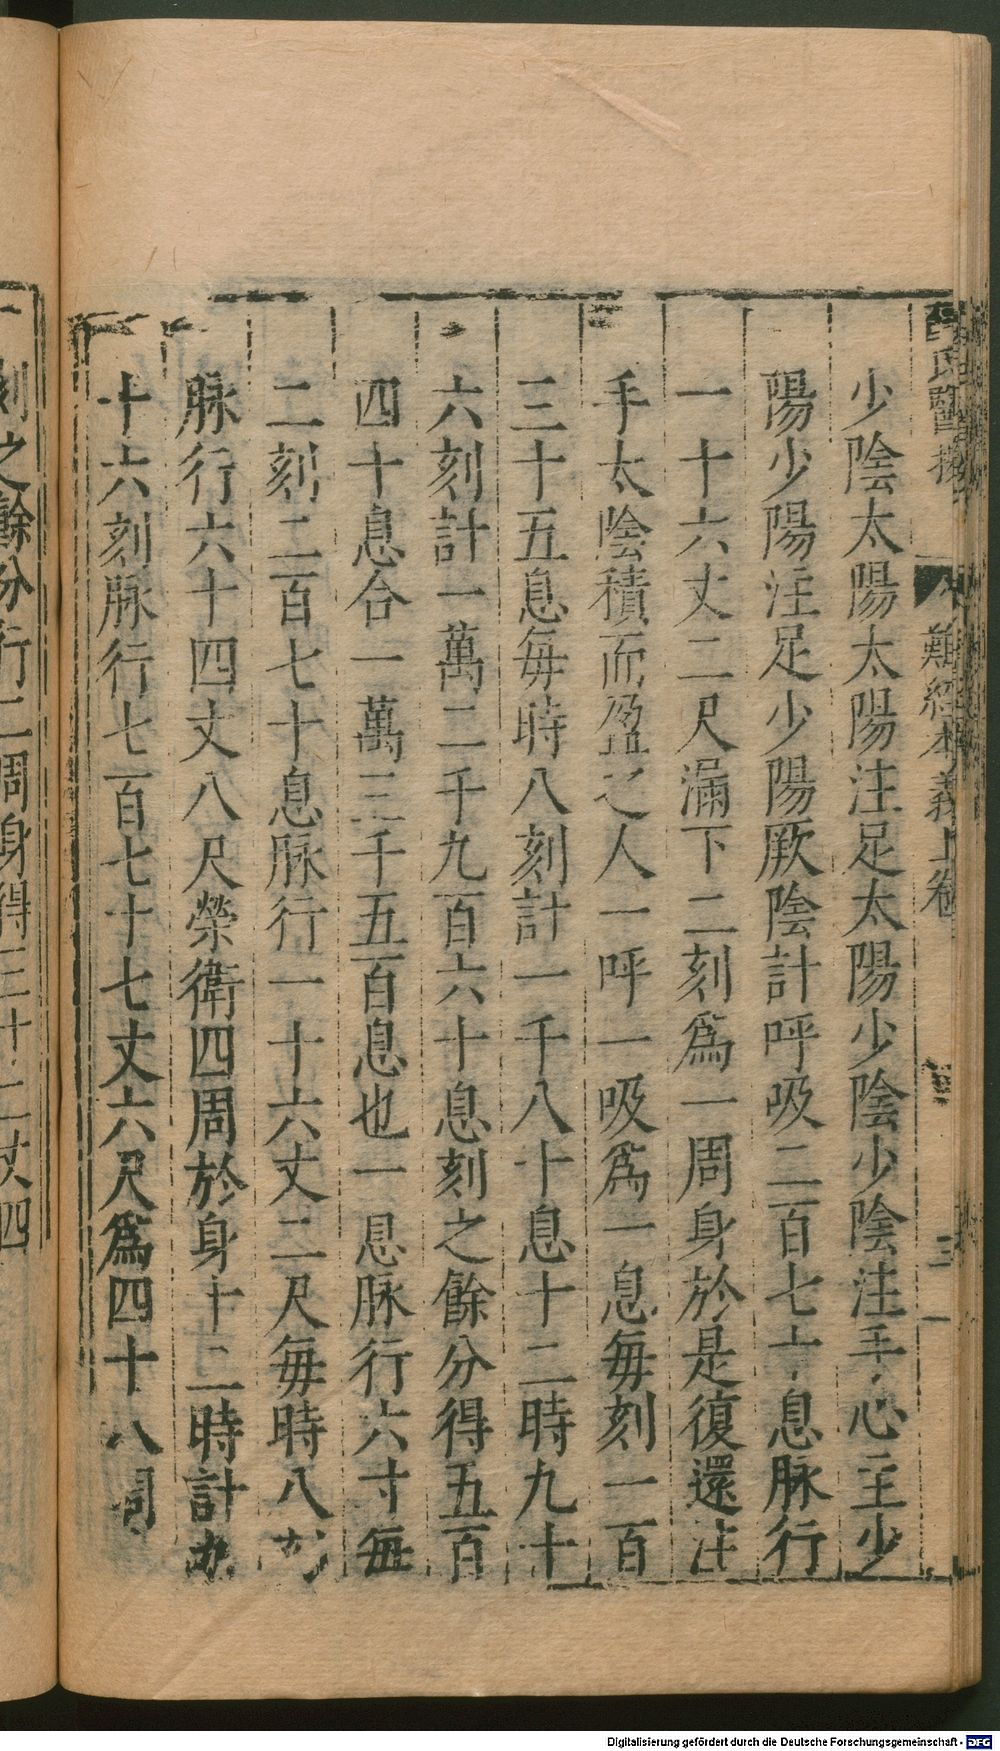 氏醫按
難經本義上卷
三
少陰太陽太陽注足太陽少陰少陰注手心主少
陽少陽注足少陽厥陰計呼吸二百七十息脉行
一十六丈二尺漏下二刻爲一周身於是復還注
手太陰積而盈之人一呼一吸爲一息每刻一百
三十五息每時八刻計一千八十息十二時九十
六刻計一萬二千九百六十息刻之餘分得五百
四十息合一萬三千五百息也一息脉行六寸每
二刻二百七十息脉行一十六丈二尺每時八刻
脉行六十四丈八尺榮衛四周於身十二時計九
十六刻脉行七百七十七丈六尺爲四十八周
刻之餘分行二周身得三十二丈四
Digitalisierung gefördert durch die Deutsche Forschungsgemeinschaft - DFG